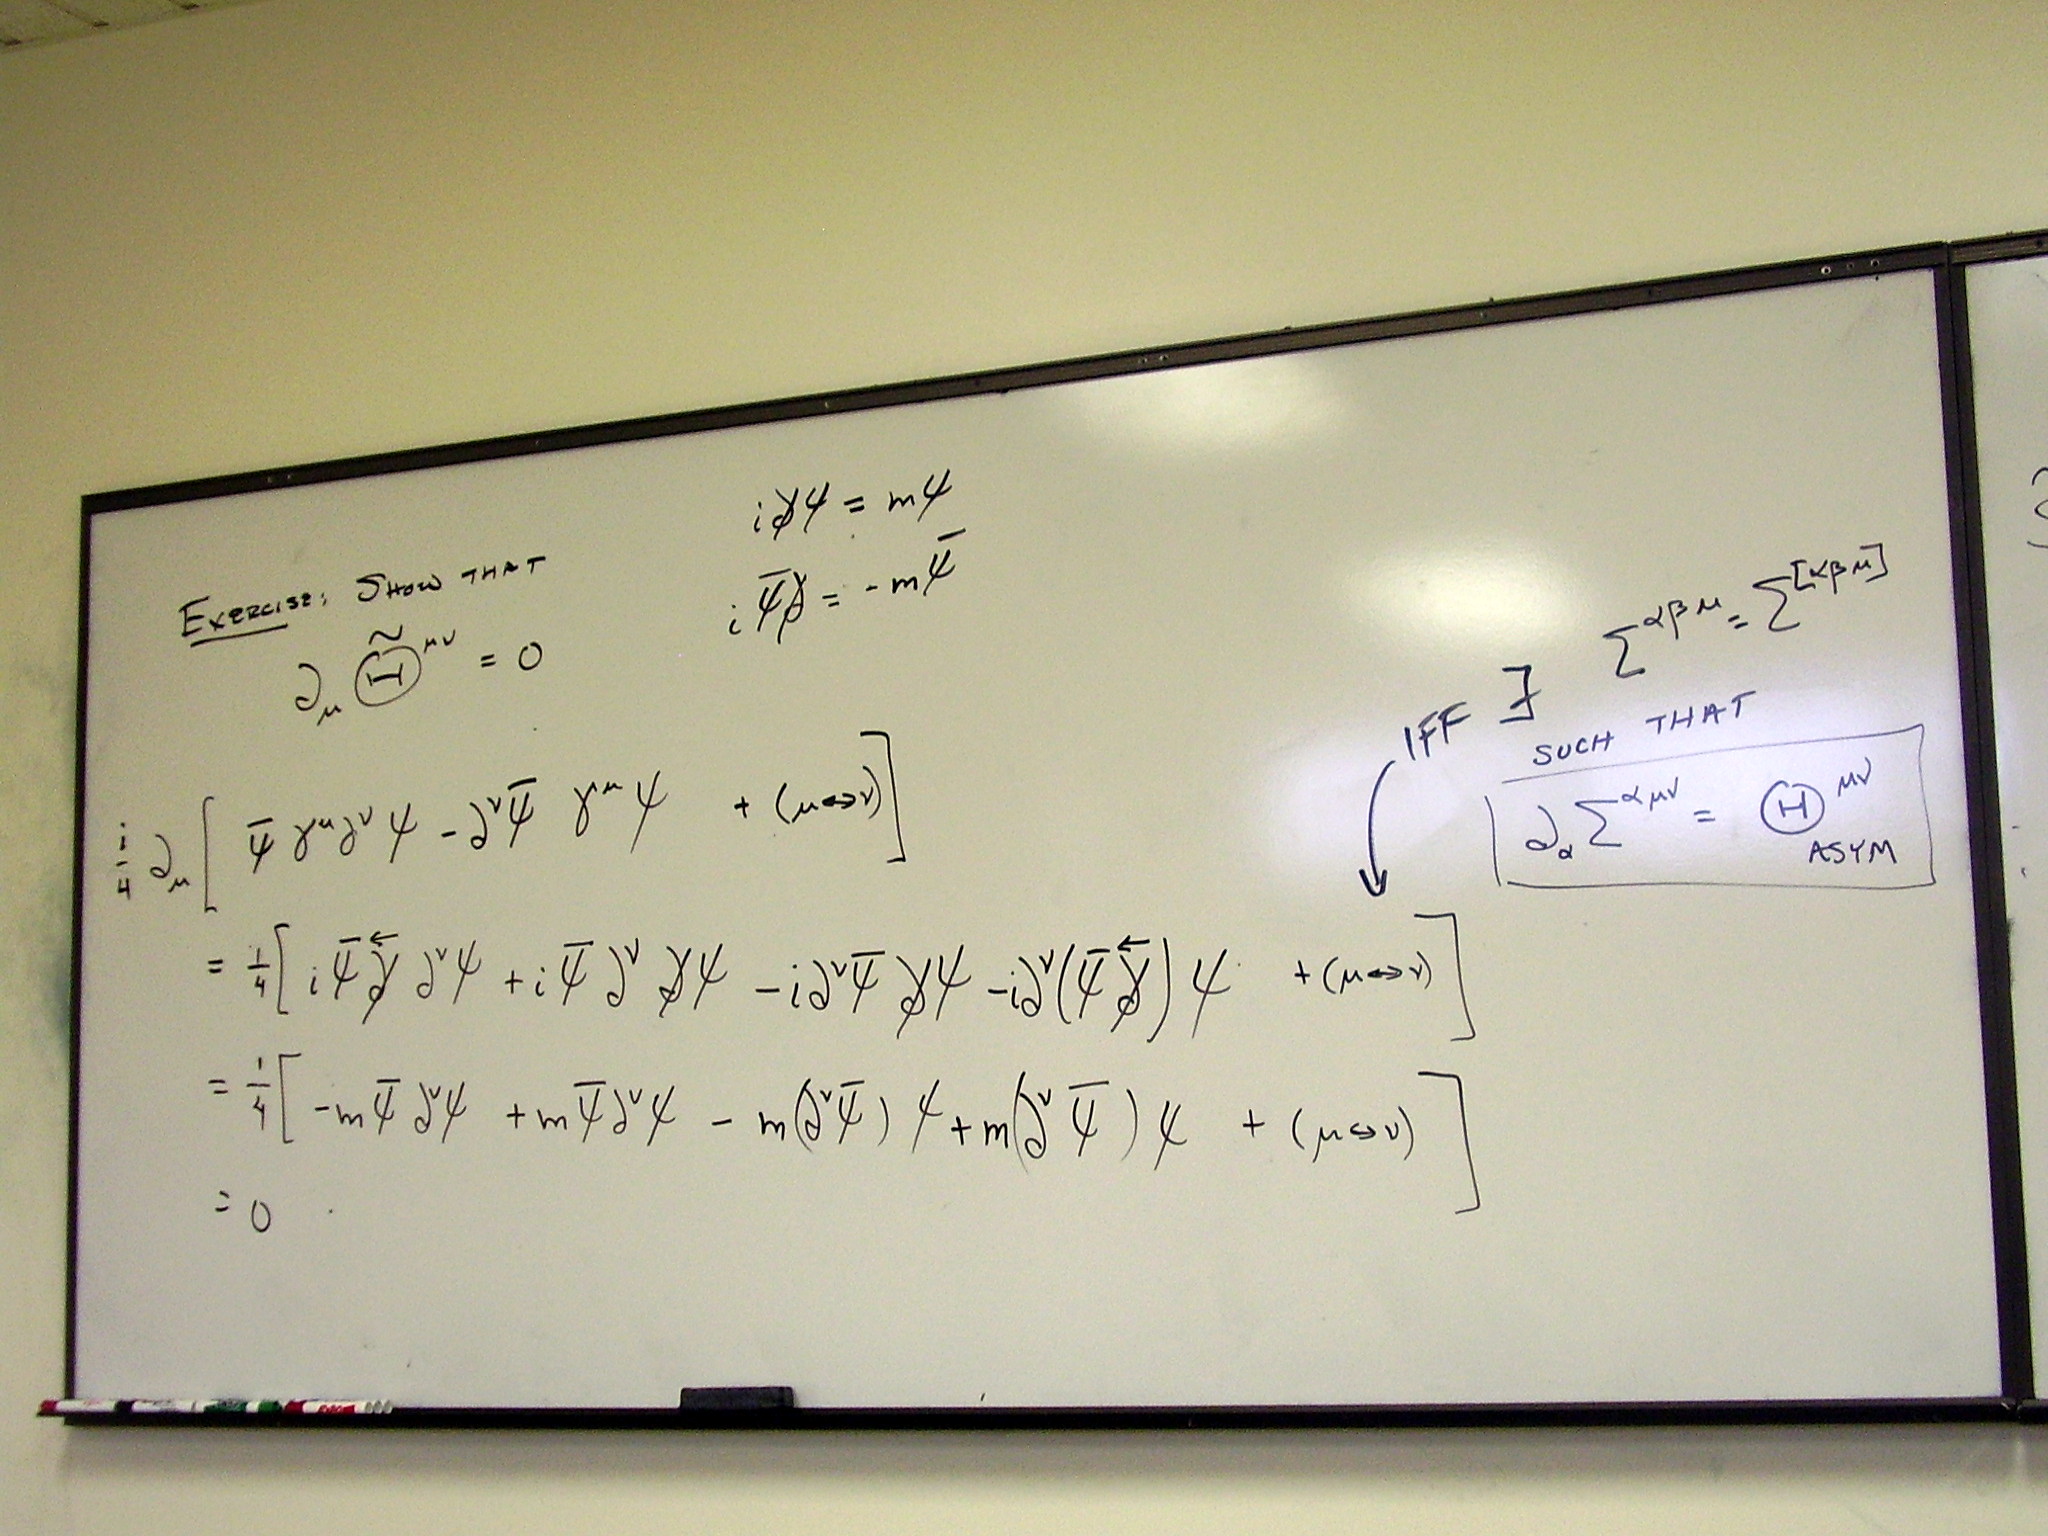 i∂̸ψ = mψ
iψ̄∂̸ = -mψ̄
EXERCISE: SHOW THAT
∂_μ Θ̃^{μν} = 0
IFF ∃ Σ^{αβμ} = Σ^{[αβμ]}
SUCH THAT
∂_α Σ^{αμν} = Θ^{μν}_{ASYM}
i/4 ∂_μ [ ψ̄ γ^μ ∂^ν ψ - ∂^ν ψ̄ γ^μ ψ + (μ↔ν) ]
= 1/4 [ i ψ̄ ∂̸← ∂^ν ψ + i ψ̄ ∂^ν ∂̸ψ - i∂^ν ψ̄ ∂̸ψ - i∂^ν (ψ̄ ∂̸←) ψ + (μ↔ν) ]
= 1/4 [ -mψ̄ ∂^ν ψ + mψ̄ ∂^ν ψ - m(∂^ν ψ̄) ψ + m(∂^ν ψ̄) ψ + (μ↔ν) ]
= 0